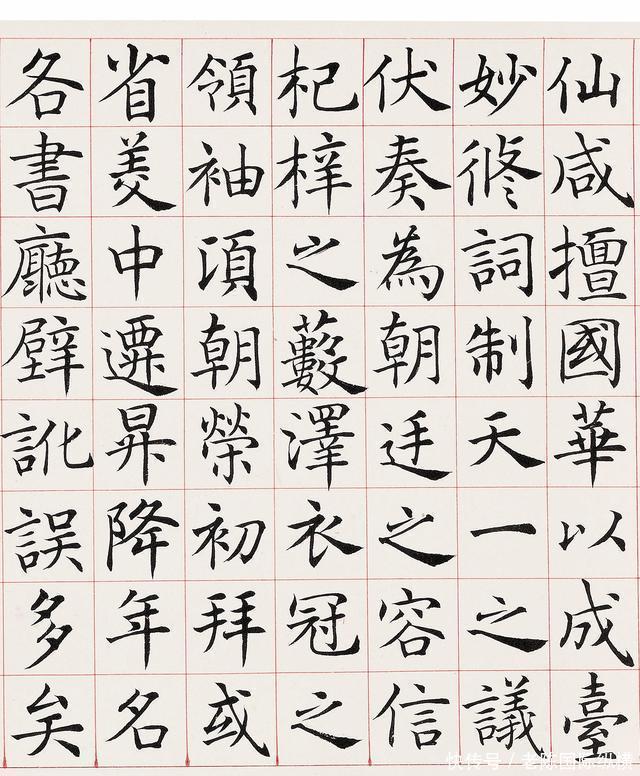 仙咸擅國華以成臺
妙脩詞制天一之議
伏奏為朝廷之容信
杞梓之藪澤衣冠之
領袖頃朝榮初拜或
省美中遷昇降年名
各書廳壁訛誤多矣
快传号／老陈国际纵横